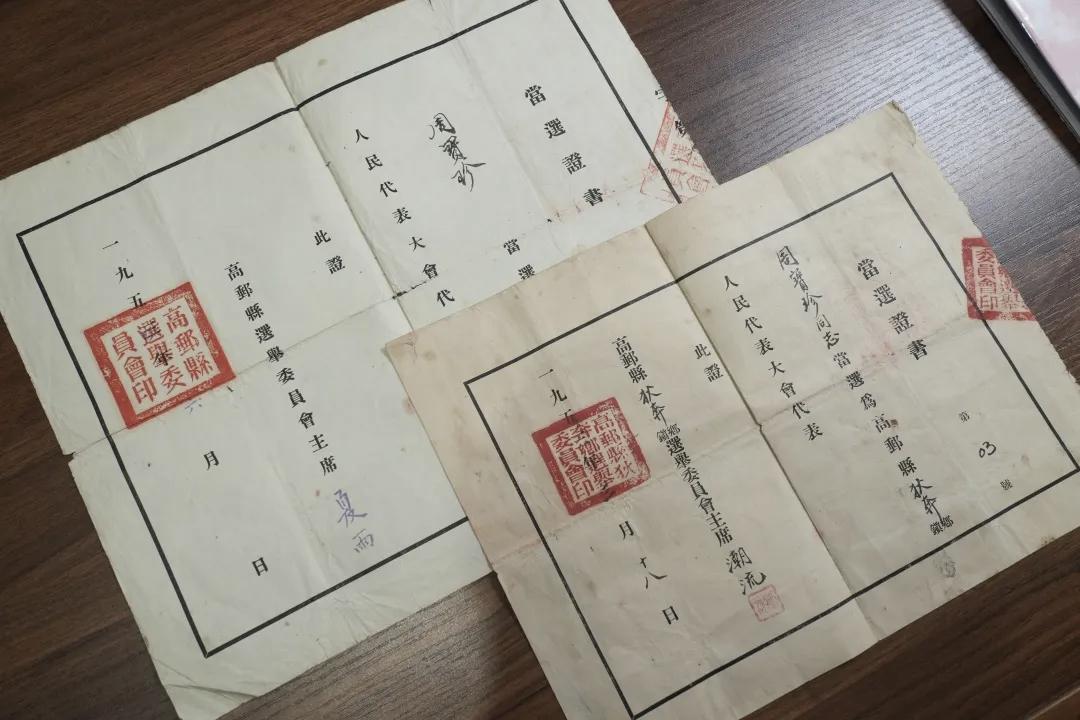 當選證書
周寶珍
當選
人民代表大會代
此證
高郵縣選舉委員會主席 夏雨
一九五
月
日
高郵縣
選舉委
員會印
當選證書
第03號
周寶珍同志當選為高郵縣狄奔鄉鎮
人民代表大會代表
此證
高郵縣狄奔鄉鎮選舉委員會主席 潮流
一九五
月十八日
高郵縣狄
奔鄉選舉
委員會印
委員會印